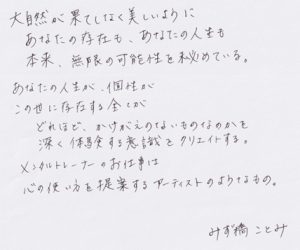 大自然が果てしなく美しいように
あなたの存在も、あなたの人生も
本来、無限の可能性を秘めている。
あなたの人生が、個性が
この世に存在する全てが
どれほど、かけがえのないものなのかを
深く体験する意識をクリエイトする。
メンタルトレーナーのお仕事は
心の使い方を提案するアーティストのようなもの。
みず橋 ことみ